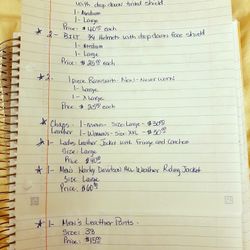 with drop down tinted shield
1- Medium
1- Large
Price: $40.00 each
* 2- BILT 3/4 Helmets with drop down face shield
1- Medium
1- Large
Price: $25.00 each
* 2-
1 piece Rainsuits - New - Never worn
1- Large
1- X Large
Price: $35.00 each
* Chaps - 1- Men's - Size: Large - $30.00
Leather 1- Women's - Size: XXL - $50.00
* 1- Ladies Leather Jacket with Fringe and Conchos
Size: Large
Price: $40.00
* 1- Men's Harley Davidson All Weather Riding Jacket
Size: Large
Price: $60.00
* 1- Men's Leather Pants -
Size: 38
Price: $15.00